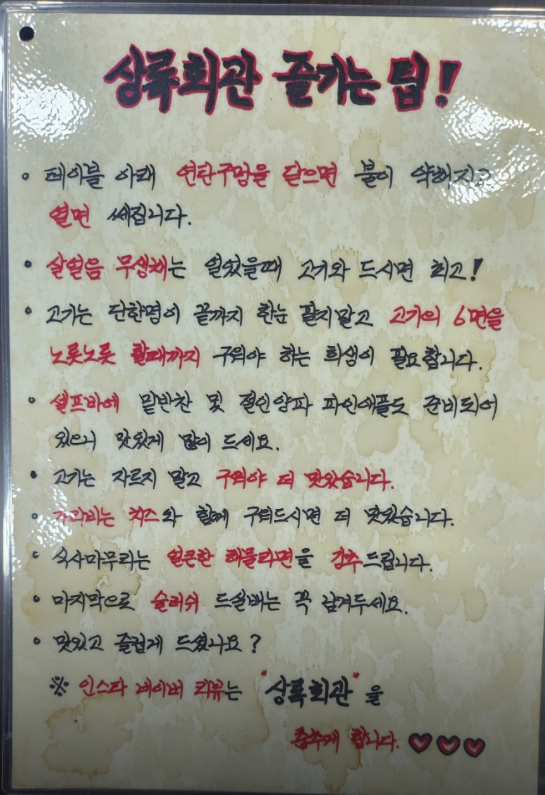 상록회관 즐기는 팁!
• 테이블 아래 연탄구멍을 닫으면 불이 약해지고
열면 쎄집니다.
• 살얼음 무생채는 얼었을때 고기와 드시면 최고!
• 고기는 단한명이 끝까지 한눈 팔지말고 고기의 6면을
노릇노릇 할때까지 구워야 하는 희생이 필요합니다.
• 셀프바에 밑반찬 및 절인양파 파인애플도 준비되어
있으니 맛있게 많이 드세요.
• 고기는 자르지 말고 구워야 더 맛있습니다.
• 치즈와 함께 구워드시면 더 맛있습니다.
• 식사마무리는 얼큰한 해물라면을 강추드립니다.
• 마지막으로 슬러쉬 드실배는 꼭 남겨두세요.
• 맛있고 즐겁게 드셨나요?
※ 인스타 네이버 리뷰는 "상록회관"을
춤추게 합니다. ♡♡♡